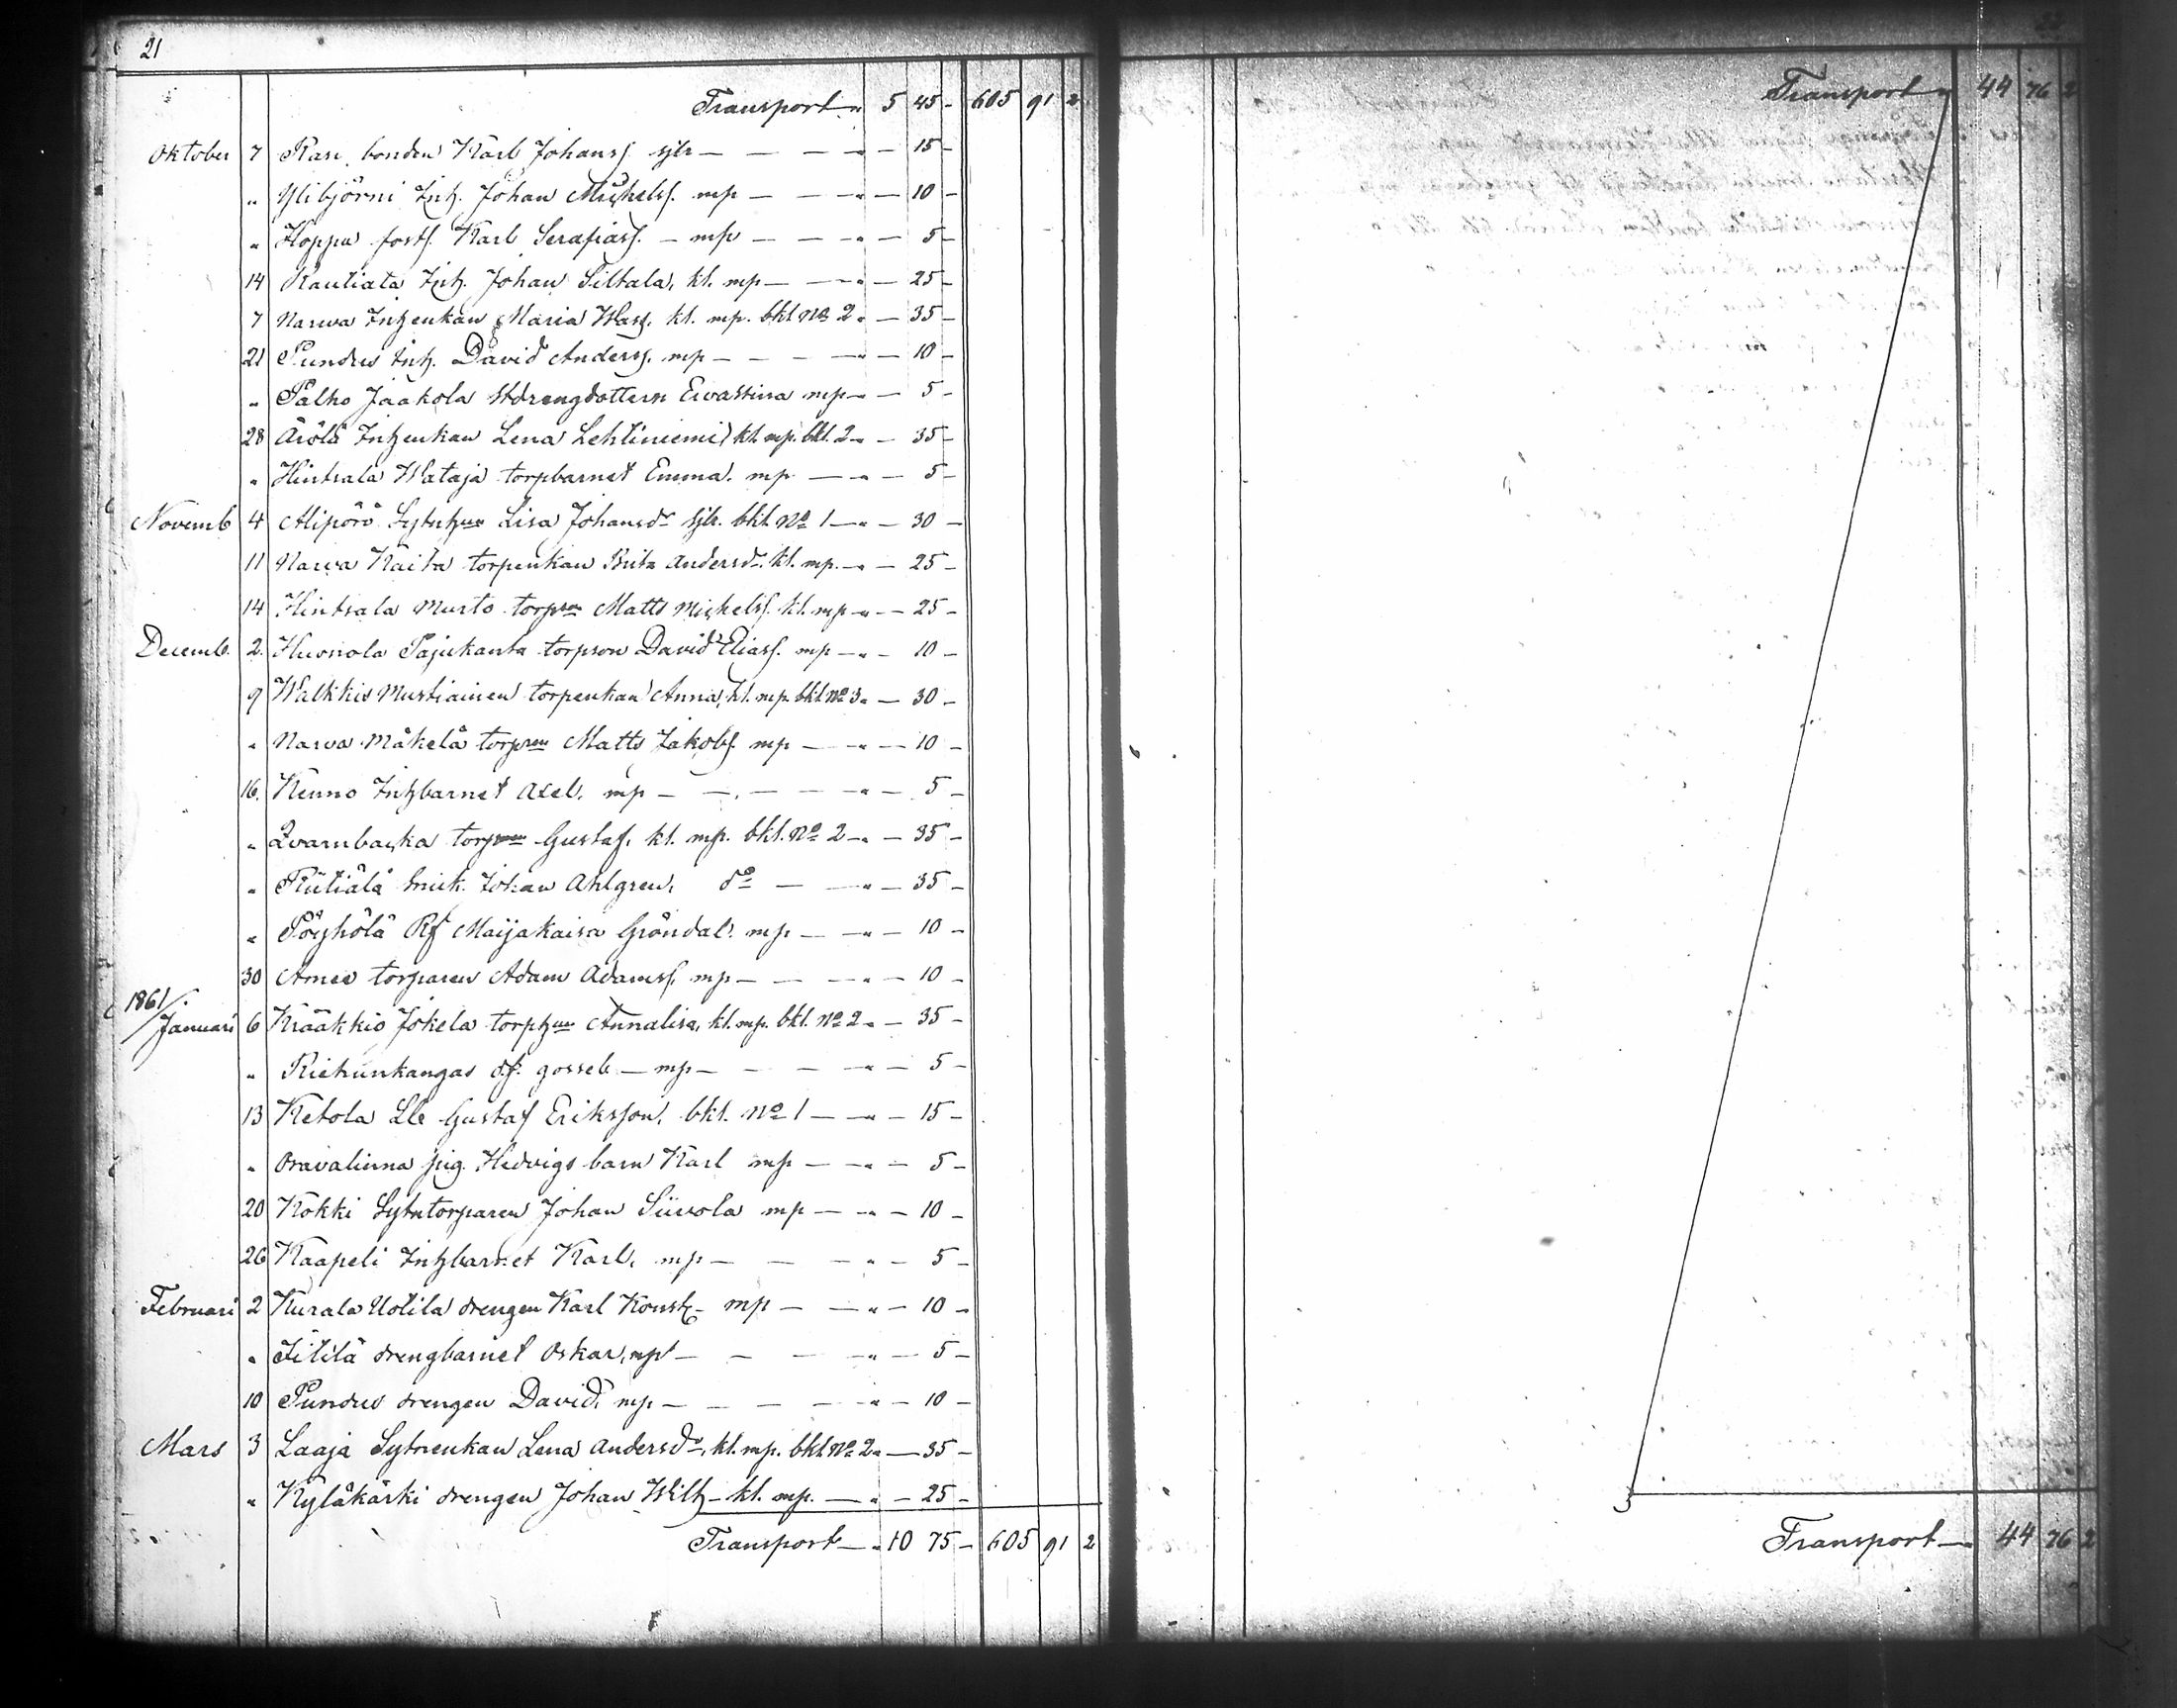 21
Transport „ 5 45 – 605 91 2
Oktober 7 Rasi bonden Karl Johanss. sjlr — — — „ — 15 –
„ Ylibjörni Inh. Johan Michelss. mp — — — „ — 10 –
„ Hoppu Karl Serafiass. — mp — — — „ — 5 –
14 Rautiala Inh. Johan Siltala, kl. mp — — „ — 25 –
7 Narwa Inhenkan Maria kl. mp. bkl No 2 „ — 35 –
21 Pundus Inh. David Anderss. mp — — — „ — 10 –
„ Palho Jaakola stdrengdottern Ewastina mp „ — 5 –
28 Ärölä Inhenkan Lena Lehtiniemi kl. mp. bkl. 2 „ — 35 –
„ Hintsala Wataja torpbarnet Emma. mp — „ — 5 –
Novemb 4 Alipörö Lisa Johansdr sjlr. bkl No 1 — „ — 30 –
11 Narva Raita torpenkan Brita Andersdr. kl. mp. — „ — 25 –
14 Hintsala Murto torpren Matts Michelss. kl. mp „ — 25 –
Decemb. 2. Huonola Pajukanta torpson David Eliass. mp — „ — 10 –
9 Walkkis Mustiainen torpenkan Anna, kl. mp. bkl No 3 „ — 30 –
„ Narva Mäkelä torpren Matts Jakobs. mp — „ — 10 –
16. Kenno Inhbarnet Axel. mp — — — — „ — 5 –
„ Qvarnbacka torpren Gustaf. kl. mp. bkl. No 2 — „ — 35 –
„ Riitialä Johan Ahlgren, do — — „ — 35 –
„ Pöyhölä Rf Maijakaisa Gröndal. mp — — „ — 10 –
30 Ames torparen Adam Adamss. mp — — — „ — 10 –
1861/.
Januari 6 Krääkkiö Jokela Annalisa, kl. mp. bkl. No 2 „ — 35 –
„ Riehunkangas gosseb — mp — — — „ — 5 –
13 Ketola Gustaf Eriksson. bkl. No 1 — — „ — 15 –
„ Oravaliinna pig. Hedvigs barn Karl mp — — „ — 5 –
20 Kokki Sytntorparen Johan Siivola mp — — „ — 10 –
26 Kaapeli Inhbarnet Karl. mp — — — „ — 5 –
Februari 2 Kurala Uotila drengen Karl Konst. mp — — „ — 10 –
„ Jitilä drengbarnet Oskar, mp — — — „ — 5 –
10 Pundus drengen David. mp — — — — „ — 10 –
Mars 3 Laaja Sytnenkan Lena Andersdr. kl. mp. bkl No 2 „ — 35 –
„ Kyläkärki drengen Johan Wilh. — kl. mp. — „ — 25 –
Transport — „ 10 75 – 605 91 2
22
Transport „ 44 76 2
Transport — „ 44 76 2